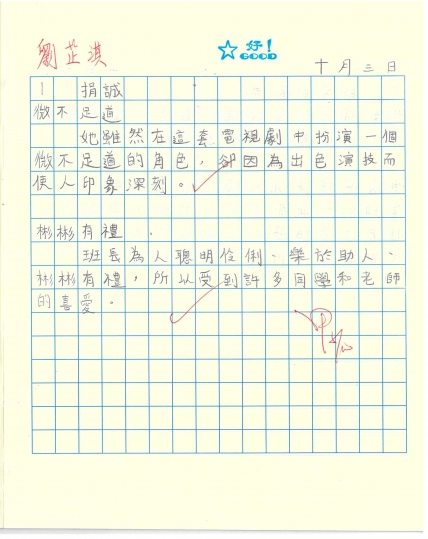 劉芷淇
☆ 好！
GOOD
十月三日
1 捐誠
微不足道
她雖然在這套電視劇中扮演一個
微不足道的角色，卻因為出色演技而
使人印象深刻。
彬彬有禮
班長為人聰明伶俐、樂於助人、
彬彬有禮，所以受到許多同學和老師
的喜愛。
甲